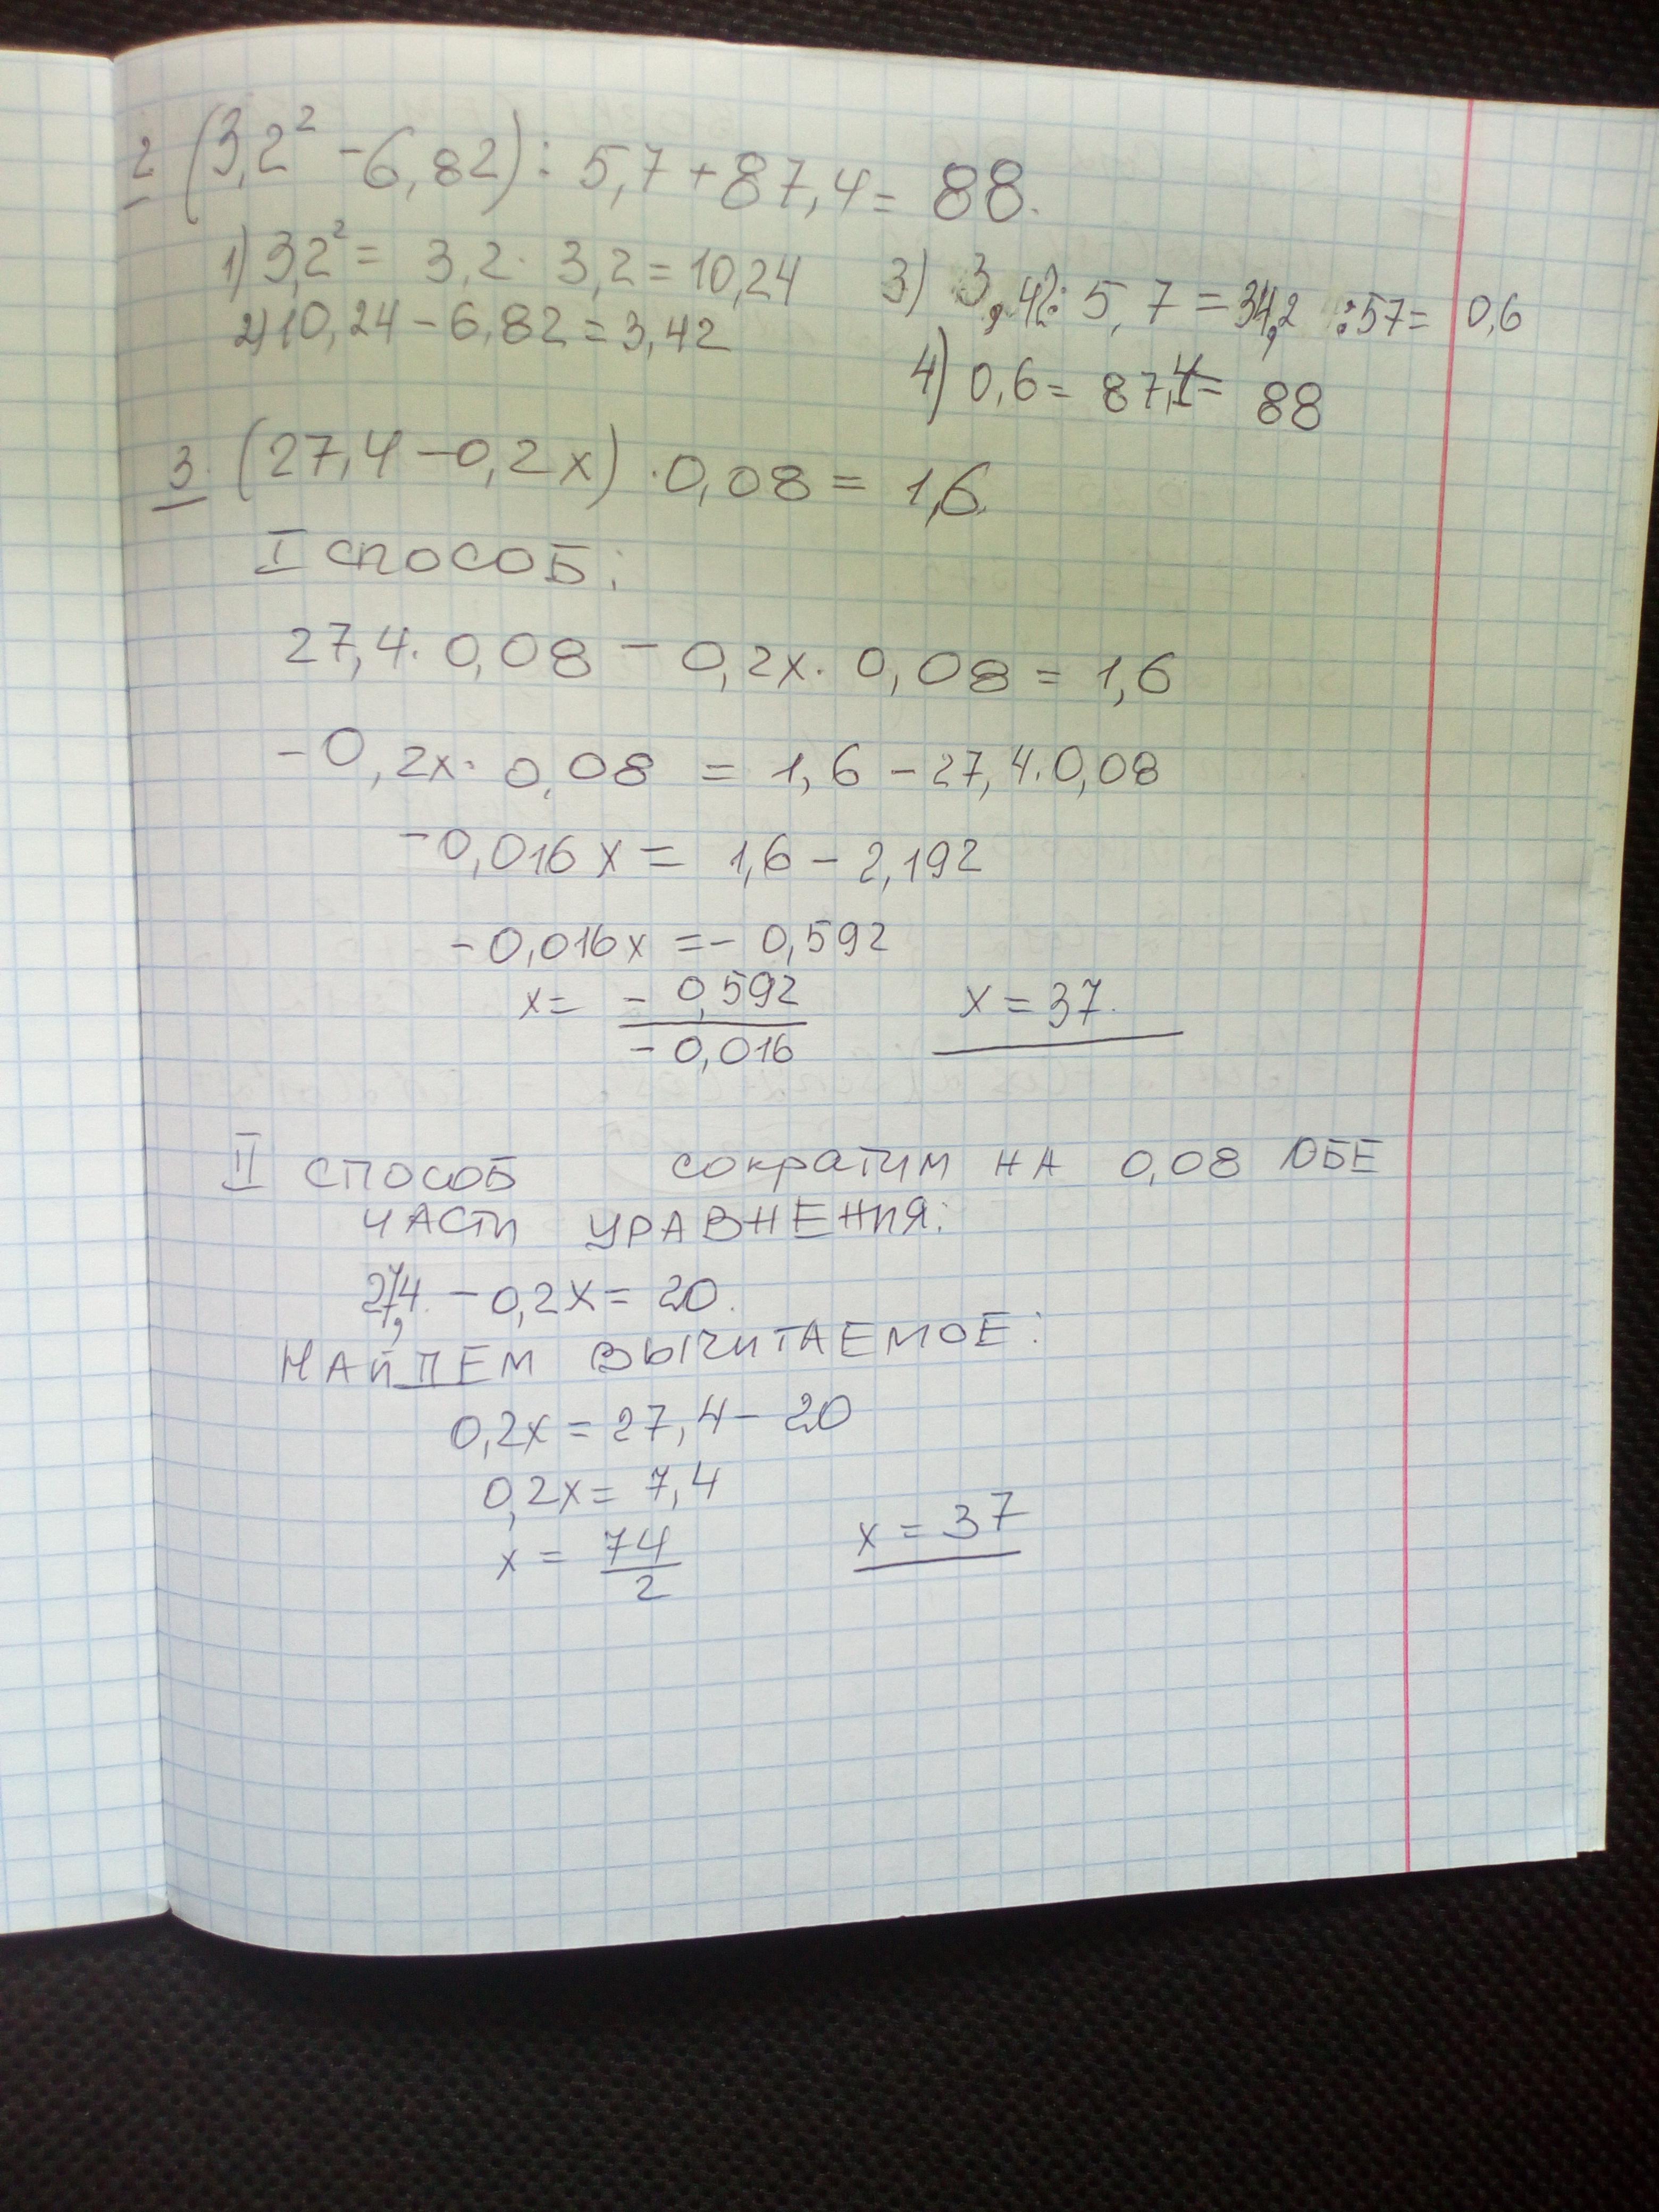 2 (3,2² - 6,82) : 5,7 + 87,4 = 88.
1) 3,2² = 3,2 · 3,2 = 10,24
2) 10,24 - 6,82 = 3,42
3) 3,42 : 5,7 = 34,2 : 57 = 0,6
4) 0,6 = 87,4 = 88
3. (27,4 - 0,2x) · 0,08 = 1,6.
I способ:
27,4 · 0,08 - 0,2x · 0,08 = 1,6
-0,2x · 0,08 = 1,6 - 27,4 · 0,08
-0,016x = 1,6 - 2,192
-0,016x = -0,592
x = -0,592 / -0,016 x = 37.
II способ сократим на 0,08 ОБЕ
ЧАСТИ УРАВНЕНИЯ:
27,4 - 0,2x = 20.
НАЙДЕМ ВЫЧИТАЕМОЕ:
0,2x = 27,4 - 20
0,2x = 7,4
x = 74 / 2 x = 37